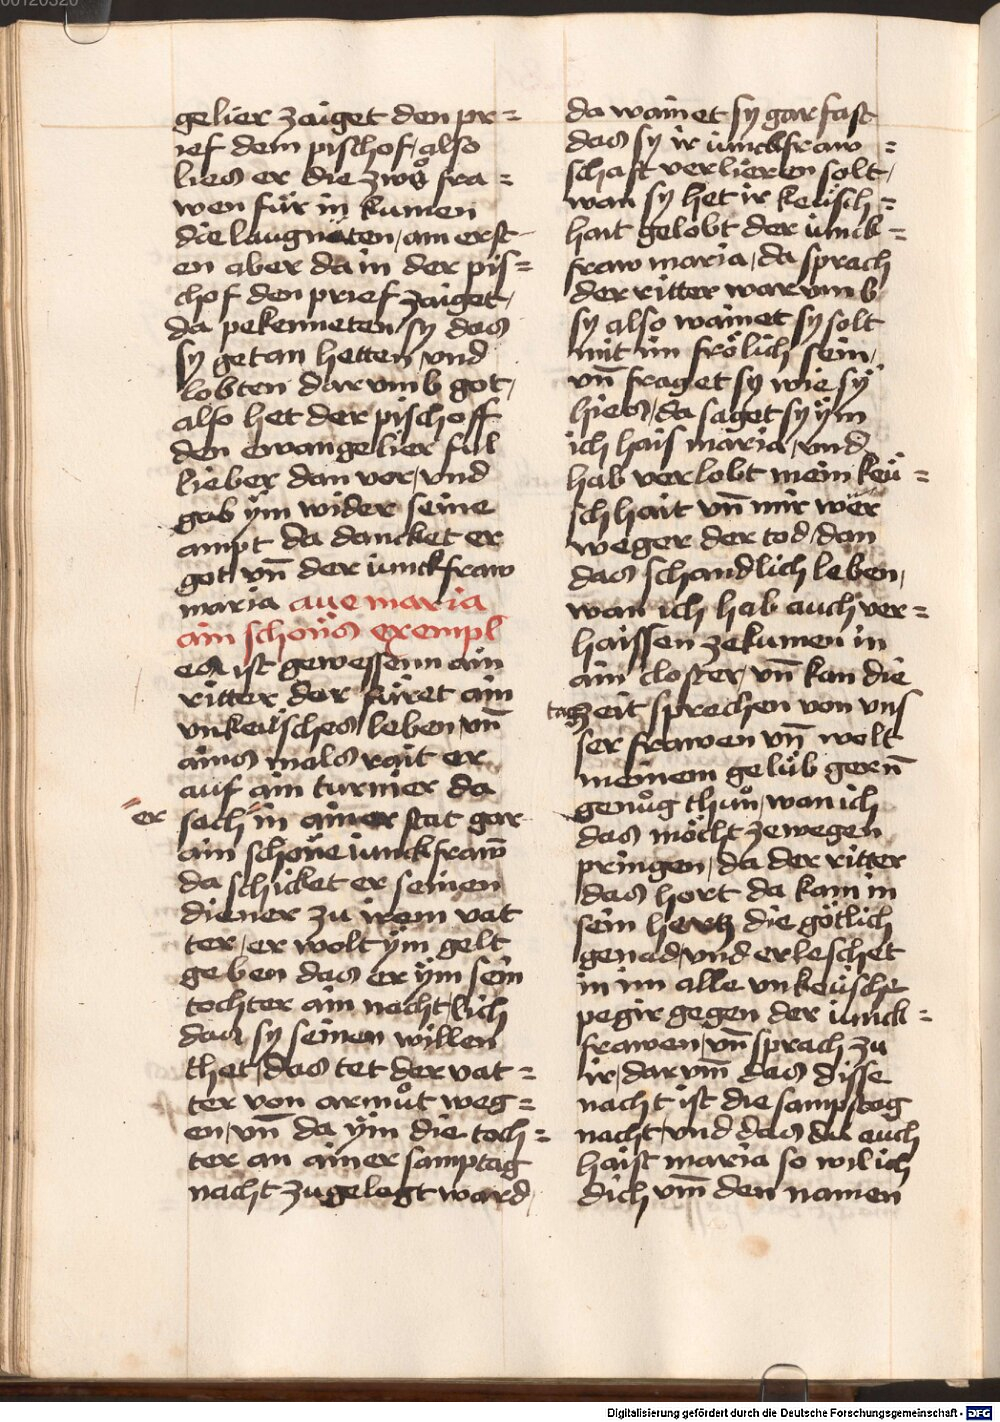 00120320
gelier zaiget den pr=
ief dem pischof, also
lies er die zwů fra=
wen für in kumen
die laugnäten, am erst-
en aber da in der pis=
chof den prief zaiget,
da pekenneten sy das
sy getan hetten, vnd
lobten darvmb got,
also het der pischoff
den ewangelier ful
lieber dan vor, vnd
gab ÿm wider seine
ampt da dancket er
got vn̄ der iunckfraw
maria aue maria
ain schöns exempl
es ist gewessenn ain
ritter der füret ain
vnkeüsches leben, vn̄
ains mals rait er
auf ain turnier da
er sach in ainer stat gar
ain schöne iunckfraw̄
da schicket er seinen
diener zu irem vat
ter, er wolt ÿm gelt
geben das er ÿm sein
tochter ain nacht lich
das sy seinen willen
thet, das tet der vat=
ter von armůt weg=
en, vn̄ da ÿm die toch=
ter an ainer samptag
nacht zugelegt ward,
da wainet sy gar fast
das sy ir iunckfraw=
schaft verlieren solt,
wan sy het ir keüsch=
hait gelobt der iunck=
fraw maria, da sprach
der ritter warvmb
sy also wainet sy solt
mit im frölich sein,
vn̄ fraget sy wie sy
hies, da saget sy ÿm
ich hais maria, vnd
hab verlobt mein keü=
schhait vn̄ mir wer
weger der tod, dan
das schandlich leben,
wan ich hab auch ver=
haissen zekumen in
ain closter, vn̄ kan die
tagzeit sprechen von vns
ser frawen vn̄ wolt
meinem gelüb gern̄
genůg thůn, wan ich
das möcht zewegen
pringen, da der ritter
das hort da kam in
sein hertz die götlich
genad, vnd erleschet
in im alle vnkeüsche
pegir gegen der iunck=
frawen, vn̄ sprach zu
ir, dar vm̄ das disse
nacht ist die sampstag
nacht, vnd das du euch
haist maria so wil ich
dich vm̄ den namen
Digitalisierung gefördert durch die Deutsche Forschungsgemeinschaft - DFG